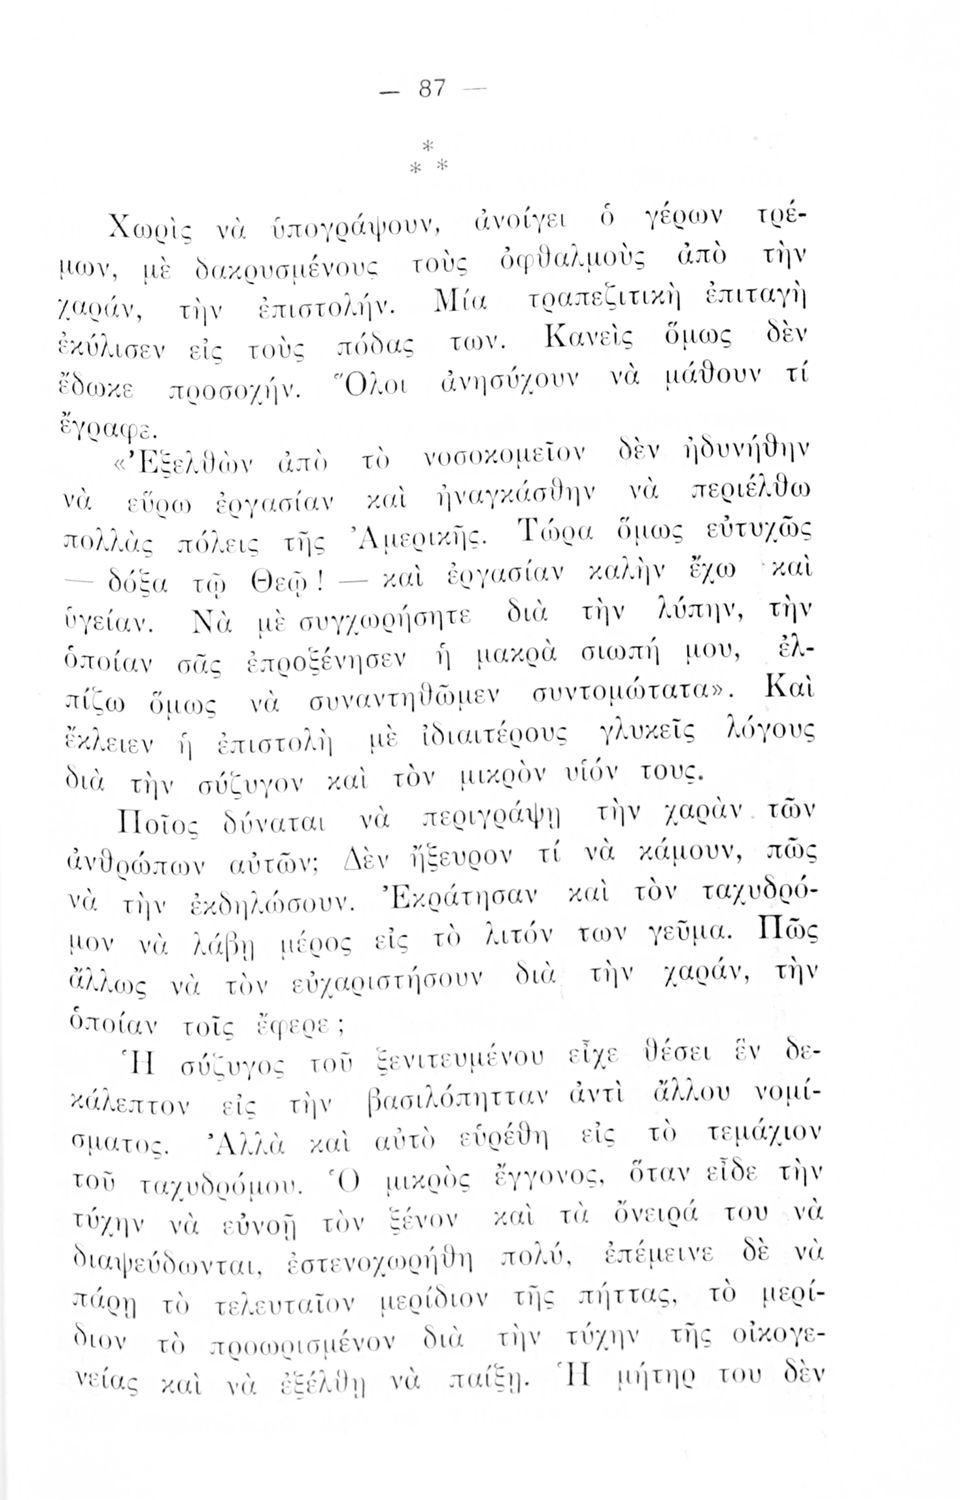 — 87 —
*
* *
Χωρὶς νὰ ὑπογράψουν, ἀνοίγει ὁ γέρων τρέ-
μων, μὲ δακρυσμένους τοὺς ὀφθαλμοὺς ἀπὸ τὴν
χαράν, τὴν ἐπιστολήν. Μία τραπεζιτικὴ ἐπιταγὴ
ἐκύλισεν εἰς τοὺς πόδας των. Κανεὶς ὅμως δὲν
ἔδωκε προσοχήν. Ὅλοι ἀνησύχουν νὰ μάθουν τί
ἔγραφε.
«Ἐξελθὼν ἀπὸ τὸ νοσοκομεῖον δὲν ἠδυνήθην
νὰ εὕρω ἐργασίαν καὶ ἠναγκάσθην νὰ περιέλθω
πολλὰς πόλεις τῆς Ἀμερικῆς. Τώρα ὅμως εὐτυχῶς
— δόξα τῷ Θεῷ! — καὶ ἐργασίαν καλὴν ἔχω καὶ
ὑγείαν. Νὰ μὲ συγχωρήσητε διὰ τὴν λύπην, τὴν
ὁποίαν σᾶς ἐπροξένησεν ἡ μακρὰ σιωπή μου, ἐλ-
πίζω ὅμως νὰ συναντηθῶμεν συντομώτατα». Καὶ
ἔκλειεν ἡ ἐπιστολὴ μὲ ἰδιαιτέρους γλυκεῖς λόγους
διὰ τὴν σύζυγον καὶ τὸν μικρὸν υἱόν τους.
Ποῖος δύναται νὰ περιγράψῃ τὴν χαρὰν τῶν
ἀνθρώπων αὐτῶν; Δὲν ἤξευρον τί νὰ κάμουν, πῶς
νὰ τὴν ἐκδηλώσουν. Ἐκράτησαν καὶ τὸν ταχυδρό-
μον νὰ λάβῃ μέρος εἰς τὸ λιτόν των γεῦμα. Πῶς
ἄλλως νὰ τὸν εὐχαριστήσουν διὰ τὴν χαράν, τὴν
ὁποίαν τοῖς ἔφερε;
Ἡ σύζυγος τοῦ ξενιτευμένου εἶχε θέσει ἓν δε-
κάλεπτον εἰς τὴν βασιλόπητταν ἀντὶ ἄλλου νομί-
σματος. Ἀλλὰ καὶ αὐτὸ εὑρέθη εἰς τὸ τεμάχιον
τοῦ ταχυδρόμου. Ὁ μικρὸς ἔγγονος, ὅταν εἶδε τὴν
τύχην νὰ εὐνοῇ τὸν ξένον καὶ τὰ ὄνειρά του νὰ
διαψεύδωνται, ἐστενοχωρήθη πολύ, ἐπέμεινε δὲ νὰ
πάρῃ τὸ τελευταῖον μερίδιον τῆς πήττας, τὸ μερί-
διον τὸ προωρισμένον διὰ τὴν τύχην τῆς οἰκογε-
νείας καὶ νὰ ἐξέλθῃ νὰ παίξῃ. Ἡ μήτηρ του δὲν